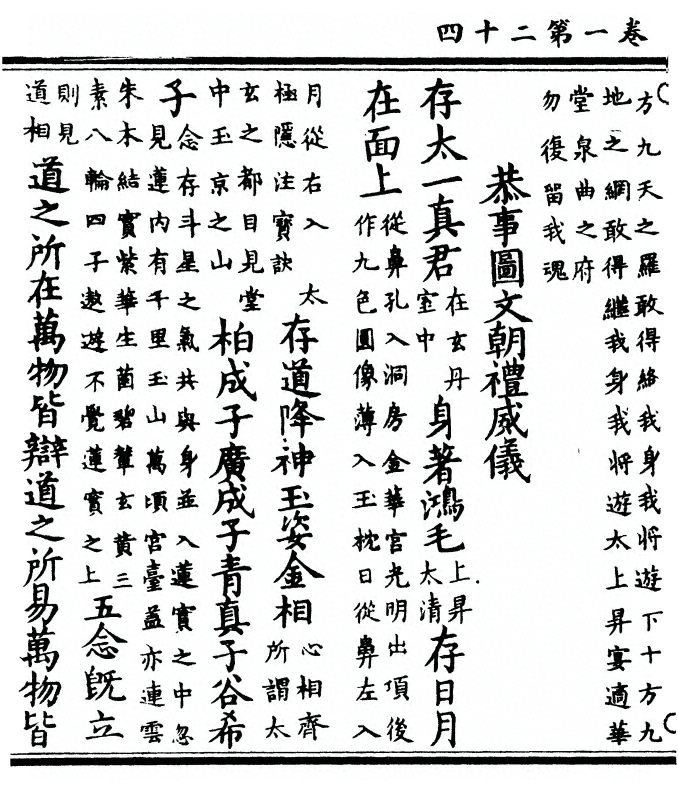 卷一第二十四
方九天之羅敢得絡我身我將遊下十方九
地之網敢得繼我身我將遊太上昇宴適華
堂泉曲之府
勿復留我魂
恭事圖文朝禮威儀
存太一真君
在玄丹
室中
身著鴻毛
上昇
太清
存日月
在面上
從鼻孔入洞房金華宮光明出項後
作九色圓像薄入玉枕日從鼻左入
月從右入 太
極隱注寶訣
存道降神玉姿金相
心相齊
所謂太
玄之都目見堂
中玉京之山
柏成子廣成子青真子谷希
子
念存斗星之氣共與身並入蓮實之中忽
見蓮內有千里玉山萬頃宮臺蓋亦連雲
朱木結實紫華生菌碧輦玄黃三
素八輪四子遨遊不覺蓮實之上
五念旣立
則見
道相
道之所在萬物皆辯道之所易萬物皆